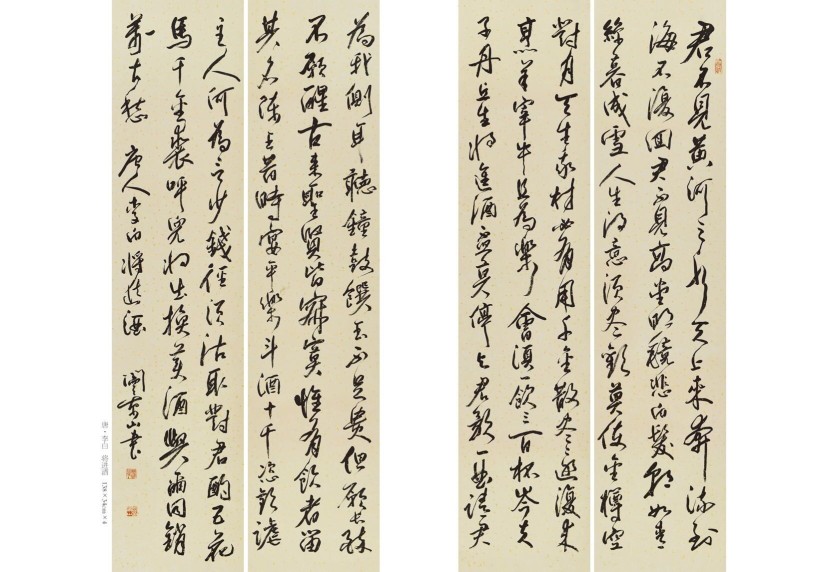 君不見黃河之水天上來奔流到
海不復回君不見高堂明鏡悲白髮朝如青
絲暮成雪人生得意須盡歡莫使金樽空
對月天生我材必有用千金散盡還復來
烹羊宰牛且為樂會須一飲三百杯岑夫
子丹丘生將進酒君莫停与君歌一曲請君
為我側耳聽鐘鼓饌玉不足貴但願長醉
不願醒古來聖賢皆寂寞惟有飲者留
其名陳王昔時宴平樂斗酒十千恣歡謔
主人何為言少錢徑須沽取對君酌五花
馬千金裘呼兒將出換美酒與爾同銷
萬古愁 唐人李白將進酒 山書
唐·李白 將進酒 138×34cm×4